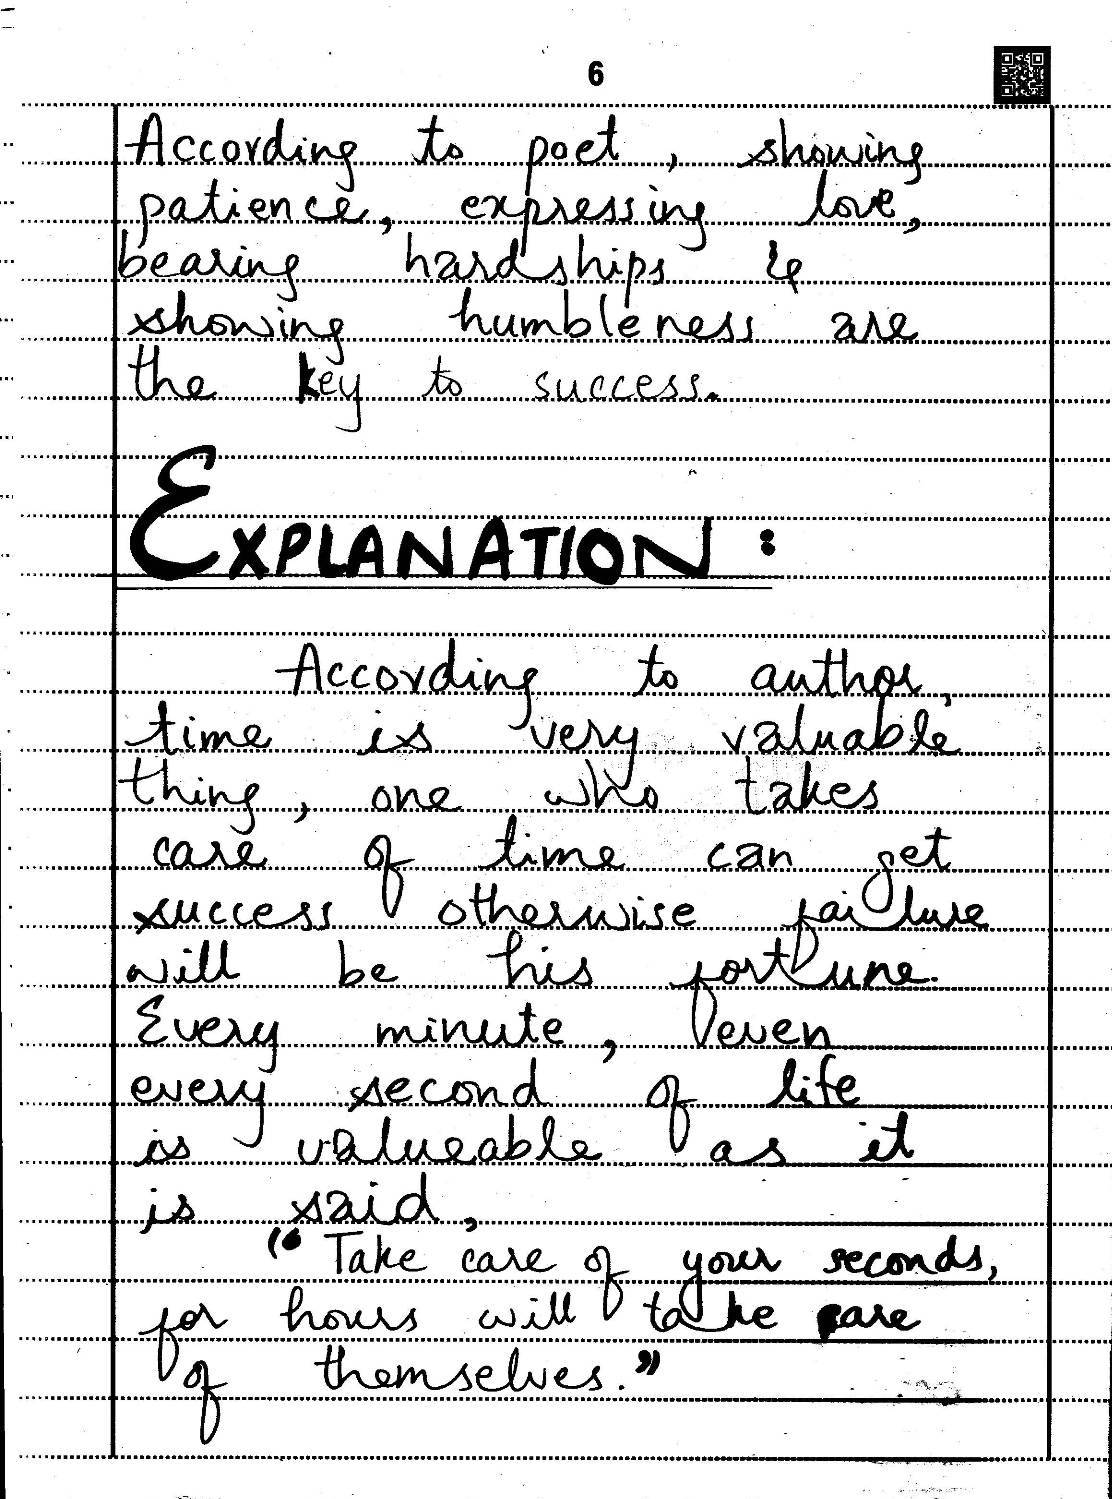 6
According to poet, showing
patience, expressing love,
bearing hardships &
showing humbleness are
the key to success.
EXPLANATION:
According to author,
time is very valuable
thing, one who takes
care of time can get
success otherwise failure
will be his fortune.
Every minute, even
every second of life
is valueable as it
is said,
"Take care of your seconds,
for hours will take care
of themselves."